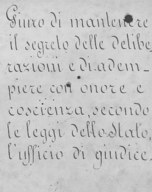 Giuro di mantenere
il segreto delle delibe,
razioni e di adem,
piere con onore e
coscienza, secondo
le leggi dello Stato,
l'ufficio di giudice.